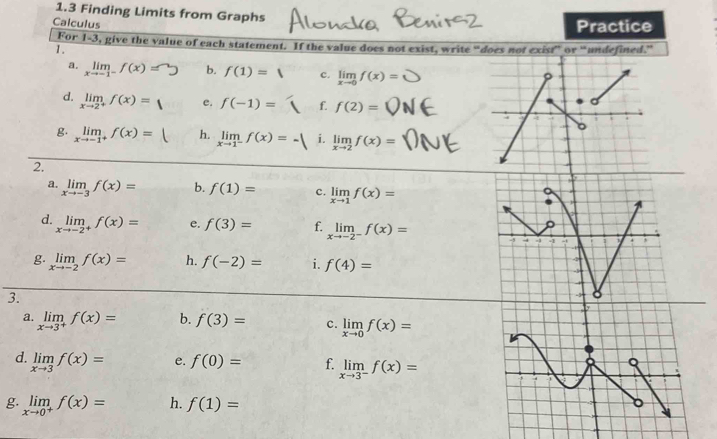 1.3 Finding Limits from Graphs
Calculus
Alondra Benitez
Practice
For 1-3, give the value of each statement. If the value does not exist, write "does not exist" or "undefined."
1.
a. lim x→-1⁻ f(x) = 3 b. f(1) = 1 c. lim x→0 f(x) = 0
d. lim x→2⁺ f(x) = 1 e. f(-1) = 1 f. f(2) = DNE
g. lim x→-1⁺ f(x) = 1 h. lim x→1⁻ f(x) = -1 i. lim x→2 f(x) = DNE
2.
a. lim x→-3 f(x) = b. f(1) = c. lim x→1 f(x) =
d. lim x→-2⁺ f(x) = e. f(3) = f. lim x→-2⁻ f(x) =
g. lim x→-2 f(x) = h. f(-2) = i. f(4) =
3.
a. lim x→3⁺ f(x) = b. f(3) = c. lim x→0 f(x) =
d. lim x→3 f(x) = e. f(0) = f. lim x→3⁻ f(x) =
g. lim x→0⁺ f(x) = h. f(1) =